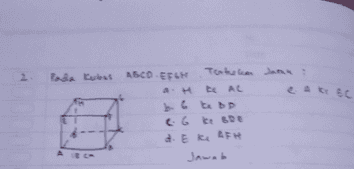 2. Pada Kubus ABCD.EFGH. Tentukan Jarak :
a. H ke AC   e. A ke EC
b. G ke BD
c. G ke BDE
d. E ke AFH
H G
E F
D C
A B
12 cm
Jawab